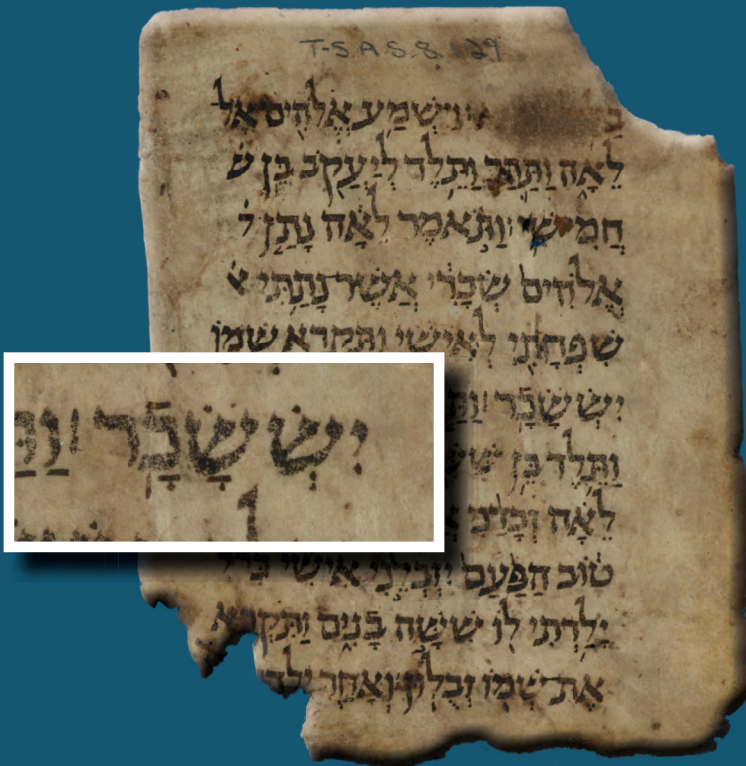 T-S A.S. 8.129
וַיִּשְׁמַע אֱלֹהִים אֶל
לֵאָה וַתַּהַר וַתֵּלֶד לְיַעֲקֹב בֵּן
חֲמִישִׁי וַתֹּאמֶר לֵאָה נָתַן
אֱלֹהִים שְׂכָרִי אֲשֶׁר־נָתַתִּי
שִׁפְחָתִי לְאִישִׁי וַתִּקְרָא שְׁמוֹ
יִשְׂשָׂכָר
יִשְׂשָׂכָר
וַתֵּלֶד בֵּן
לֵאָה
טוֹב הַפַּעַם יִזְבְּלֵנִי אִישִׁי
יָלַדְתִּי לוֹ שִׁשָּׁה בָנִים וַתִּקְרָא
אֶת־שְׁמוֹ זְבֻלוּן וְאַחַר